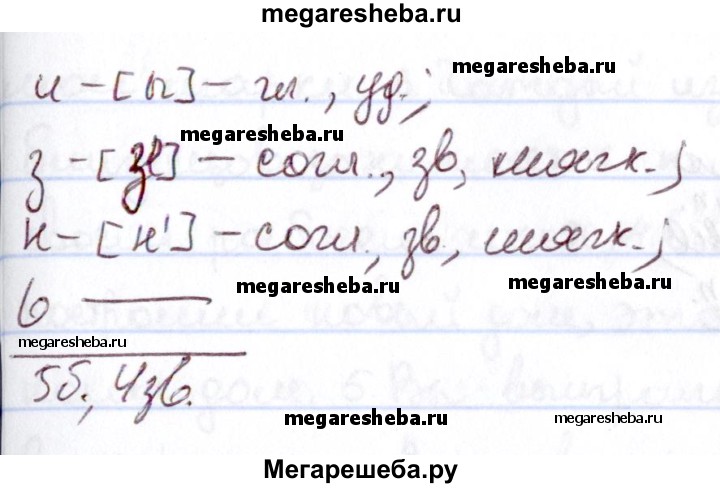 megaresheba.ru
и – [ы] – гл., уд.;
megaresheba.ru
megaresheba.ru
з – [з'] – согл., зв, мягк.;
н – [н'] – согл., зв., мягк.;
megaresheba.ru
megaresheba.ru
ь ——
megaresheba.ru
5б., 4зв.
megaresheba.ru
megaresheba.ru
Мегарешеба.ру